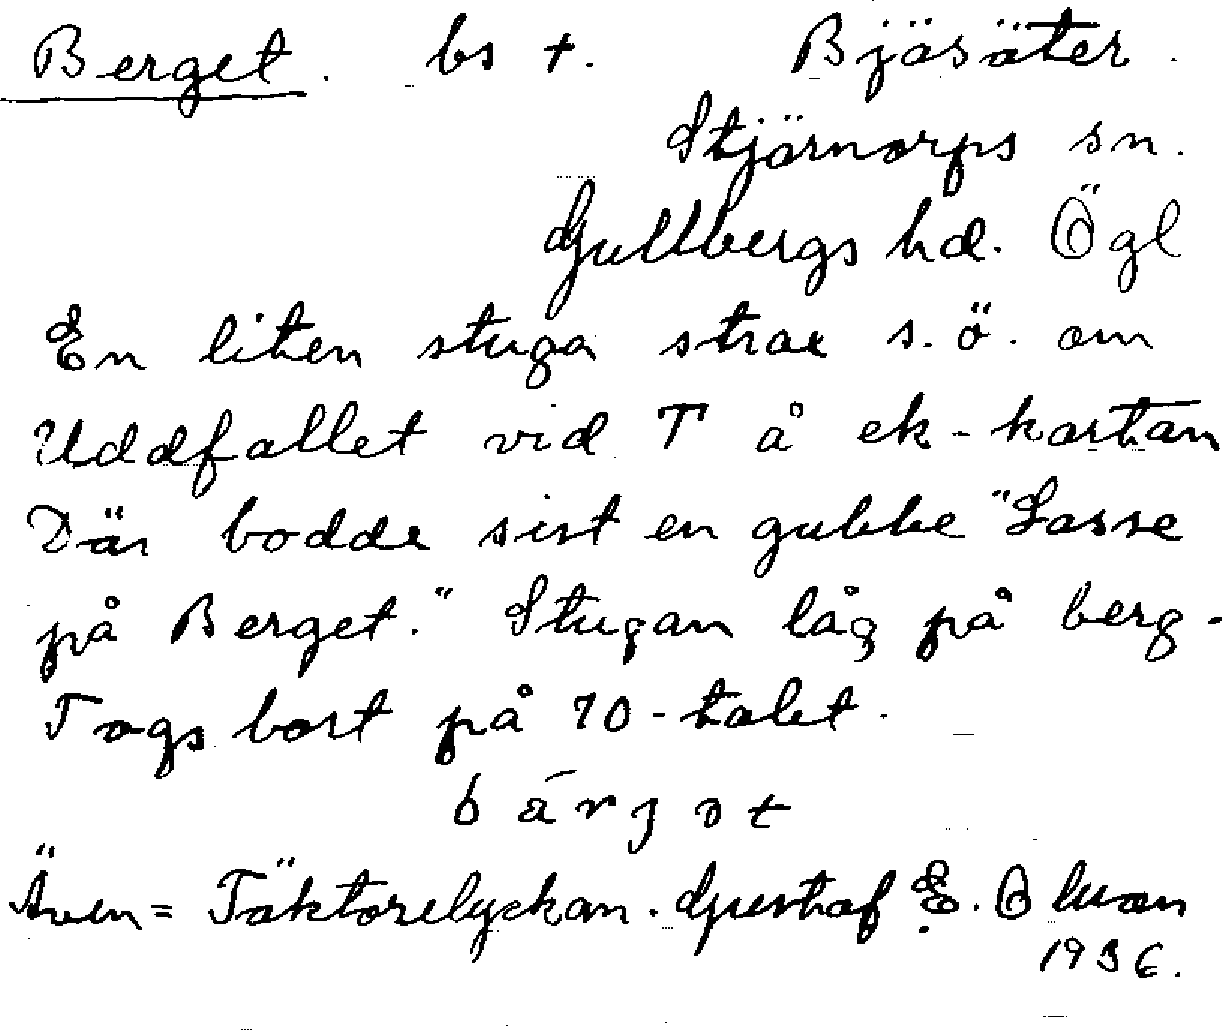 Berget. bs +. Bjäsäter.
Stjärnorps sn.
Gullbergs hd. Ögl
En liten stuga strax s.ö. om
Uddfallet vid T å ek-kartan
Där bodde sist en gubbe "Lasse
på Berget." Stugan låg på berg.
Togs bort på 70-talet.
bärjət
Även = Täktorelyckan. Gustaf E.
1936.